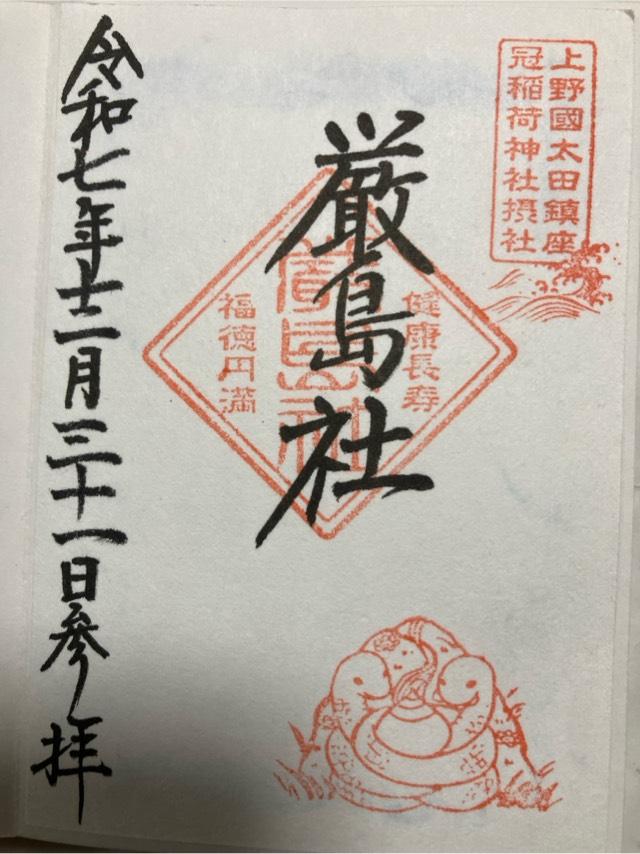 上野國太田鎮座
冠稲荷神社摂社
厳島社
健康長寿
厳島社
福徳円満
令和七年十二月三十一日参拝